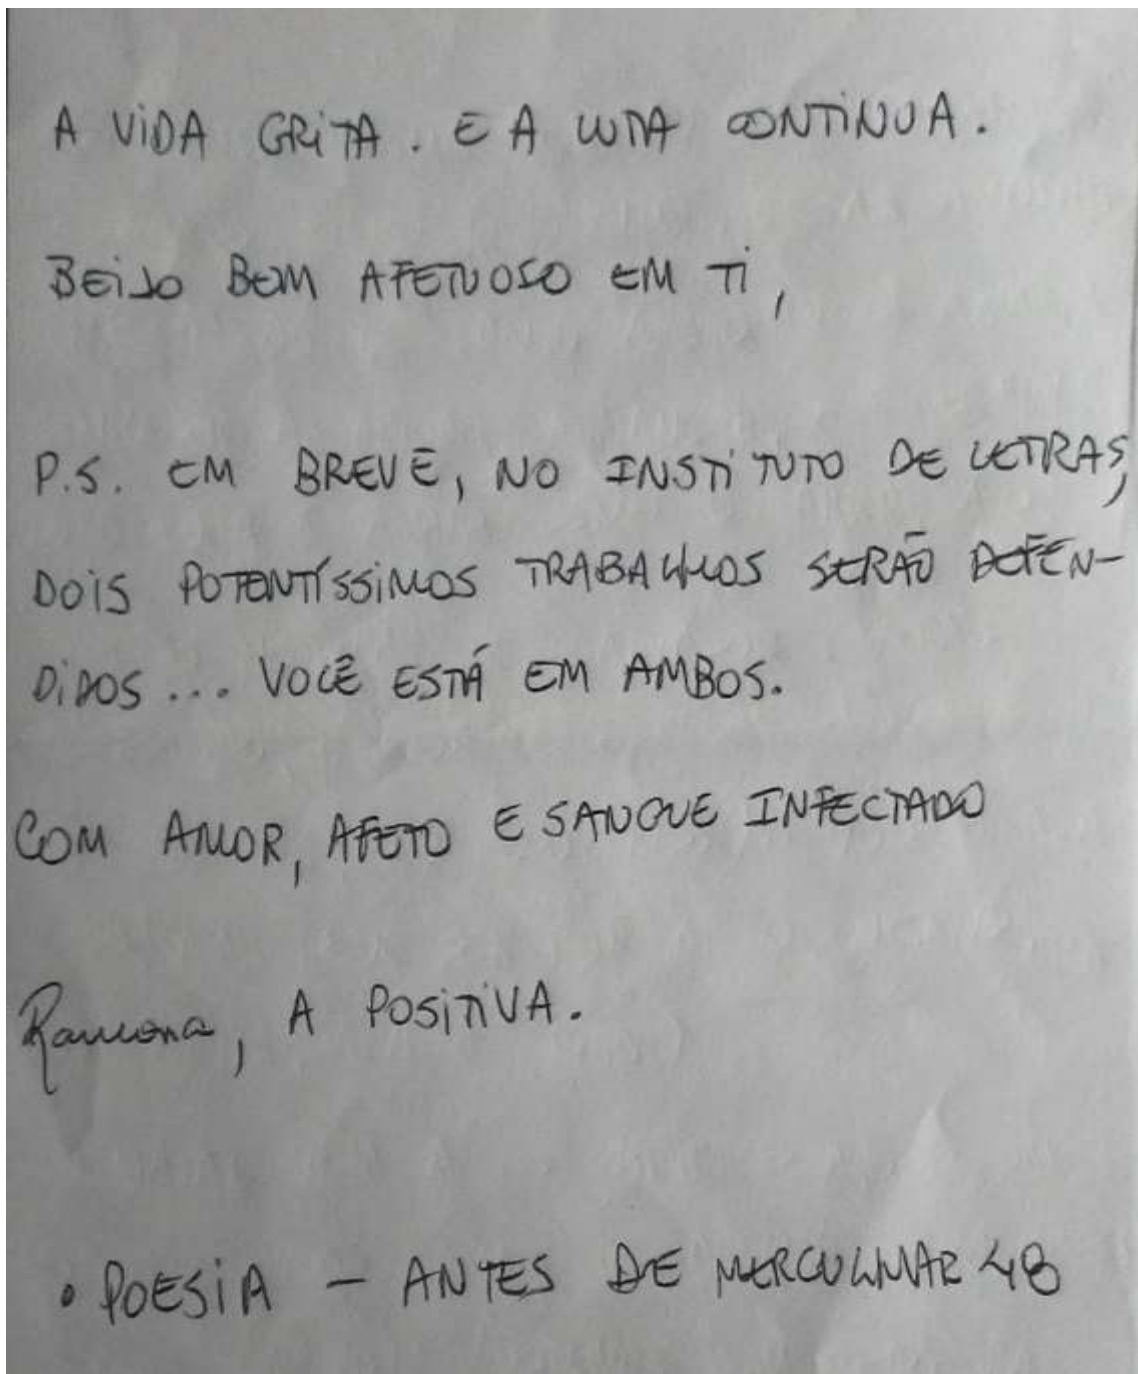 A VIDA GRITA. E A LUTA CONTINUA.
BEIJO BEM AFETUOSO EM TI,
P.S. EM BREVE, NO INSTITUTO DE LETRAS,
DOIS POTENTÍSSIMOS TRABALHOS SERÃO DEFEN-
DIDOS... VOCÊ ESTÁ EM AMBOS.
COM AMOR, AFETO E SANGUE INFECTADO
Ramona, A POSITIVA.
• POESIA - ANTES DE MERGULHAR 48